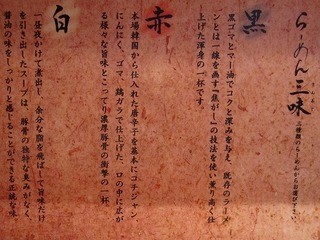 らーめん三味
三種類のらーめんからお選び下さい。
黒
黒ゴマとマー油でコクと深みを与え、既存のラーメ
ンとは一線を画す“焦がし”の技法を使い薫り高く仕
上げた渾身の一杯です。
赤
本場韓国から仕入れた唐辛子を基本にコチジャン
にんにく、ゴマ、鶏ガラで仕上げた、口の中に広が
る様々な旨味とこってり濃厚豚骨の衝撃の一杯。
白
一昼夜かけて煮出し、余分な脂を飛ばして旨味だけ
を引き出したスープは、豚骨の独特な臭みがなく、
醤油の味をしっかりと感じることができる正統な味